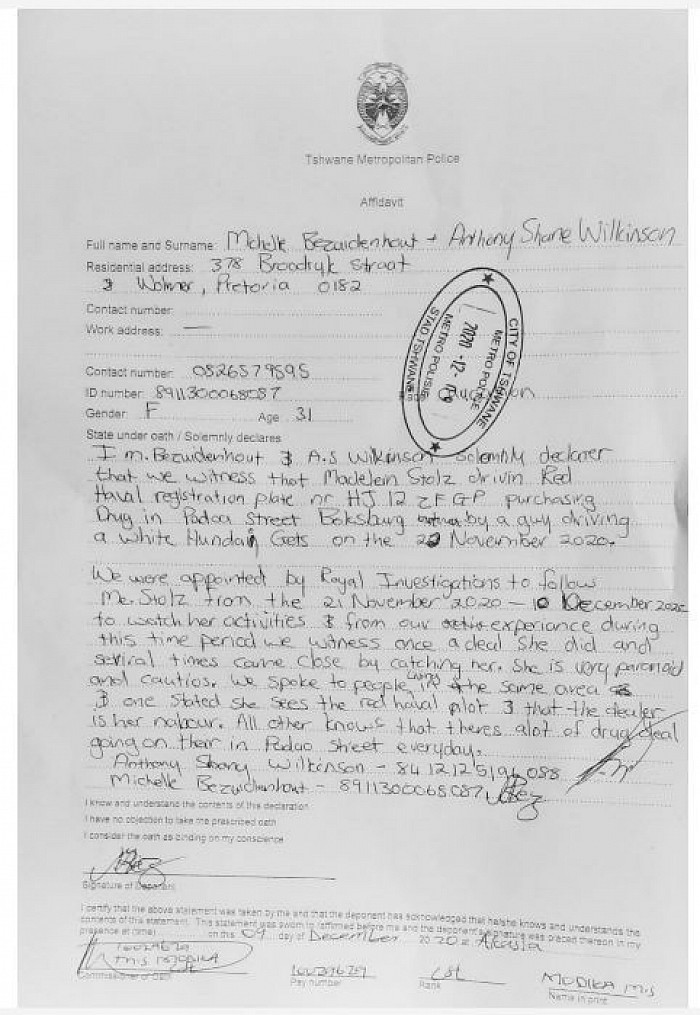 Tshwane Metropolitan Police
Affidavit
Full name and Surname: Michelle Bezuidenhout + Anthony Shane Wilkinson
Residential address: 378 Broodryk straat
Wolmer, Pretoria 0182
Contact number:
Work address: —
CITY OF TSHWANE
METRO POLICE
2020 -12- 09
METRO POLISIE
STAD TSHWANE
Contact number: 0826579595
ID number: 8911300068087
Gender: F Age 31
State under oath / Solemnly declares
I m. Bezuidenhout & A.S Wilkinson solemnly declarer
that we witness that Madelein Stolz drivin Red
Haval registration plate nr HJ 12 ZF GP purchasing
Drug in Padoa Street Boksburg by a guy driving
a white Hundai Gets on the November 2020.
We were appointed by Royal Investigations to follow
Me. Stolz from the 21 November 2020 – 10 December 2020
to watch her activities & from our experiance during
this time period we witness once a deal she did and
seviral times came close by catching her. She is very paranoid
and cautios. We spoke to people living in the same area
& one stated she sees the red haval alot & that the dealer
is her nabour. All other knows that theres alot of drug deal
going on their in Padao street everyday.
Anthony Shany Wilkinson - 8412125194088
Michelle Bezuidenhout - 8911300068087
I know and understand the contents of this declaration
I have no objection to take the prescribed oath
I consider the oath as binding on my conscience
Signature of Deponent
I certify that the above statement was taken by me and that the deponent has acknowledged that he/she knows and understands the
contents of this statement. This statement was sworn to /affirmed before me and the deponent's signature was placed thereon in my
presence at (time) on this 09 day of December 2020 at Akasia
Commissioner of Oath Pay number Rank MODIKA M.S
Name in print